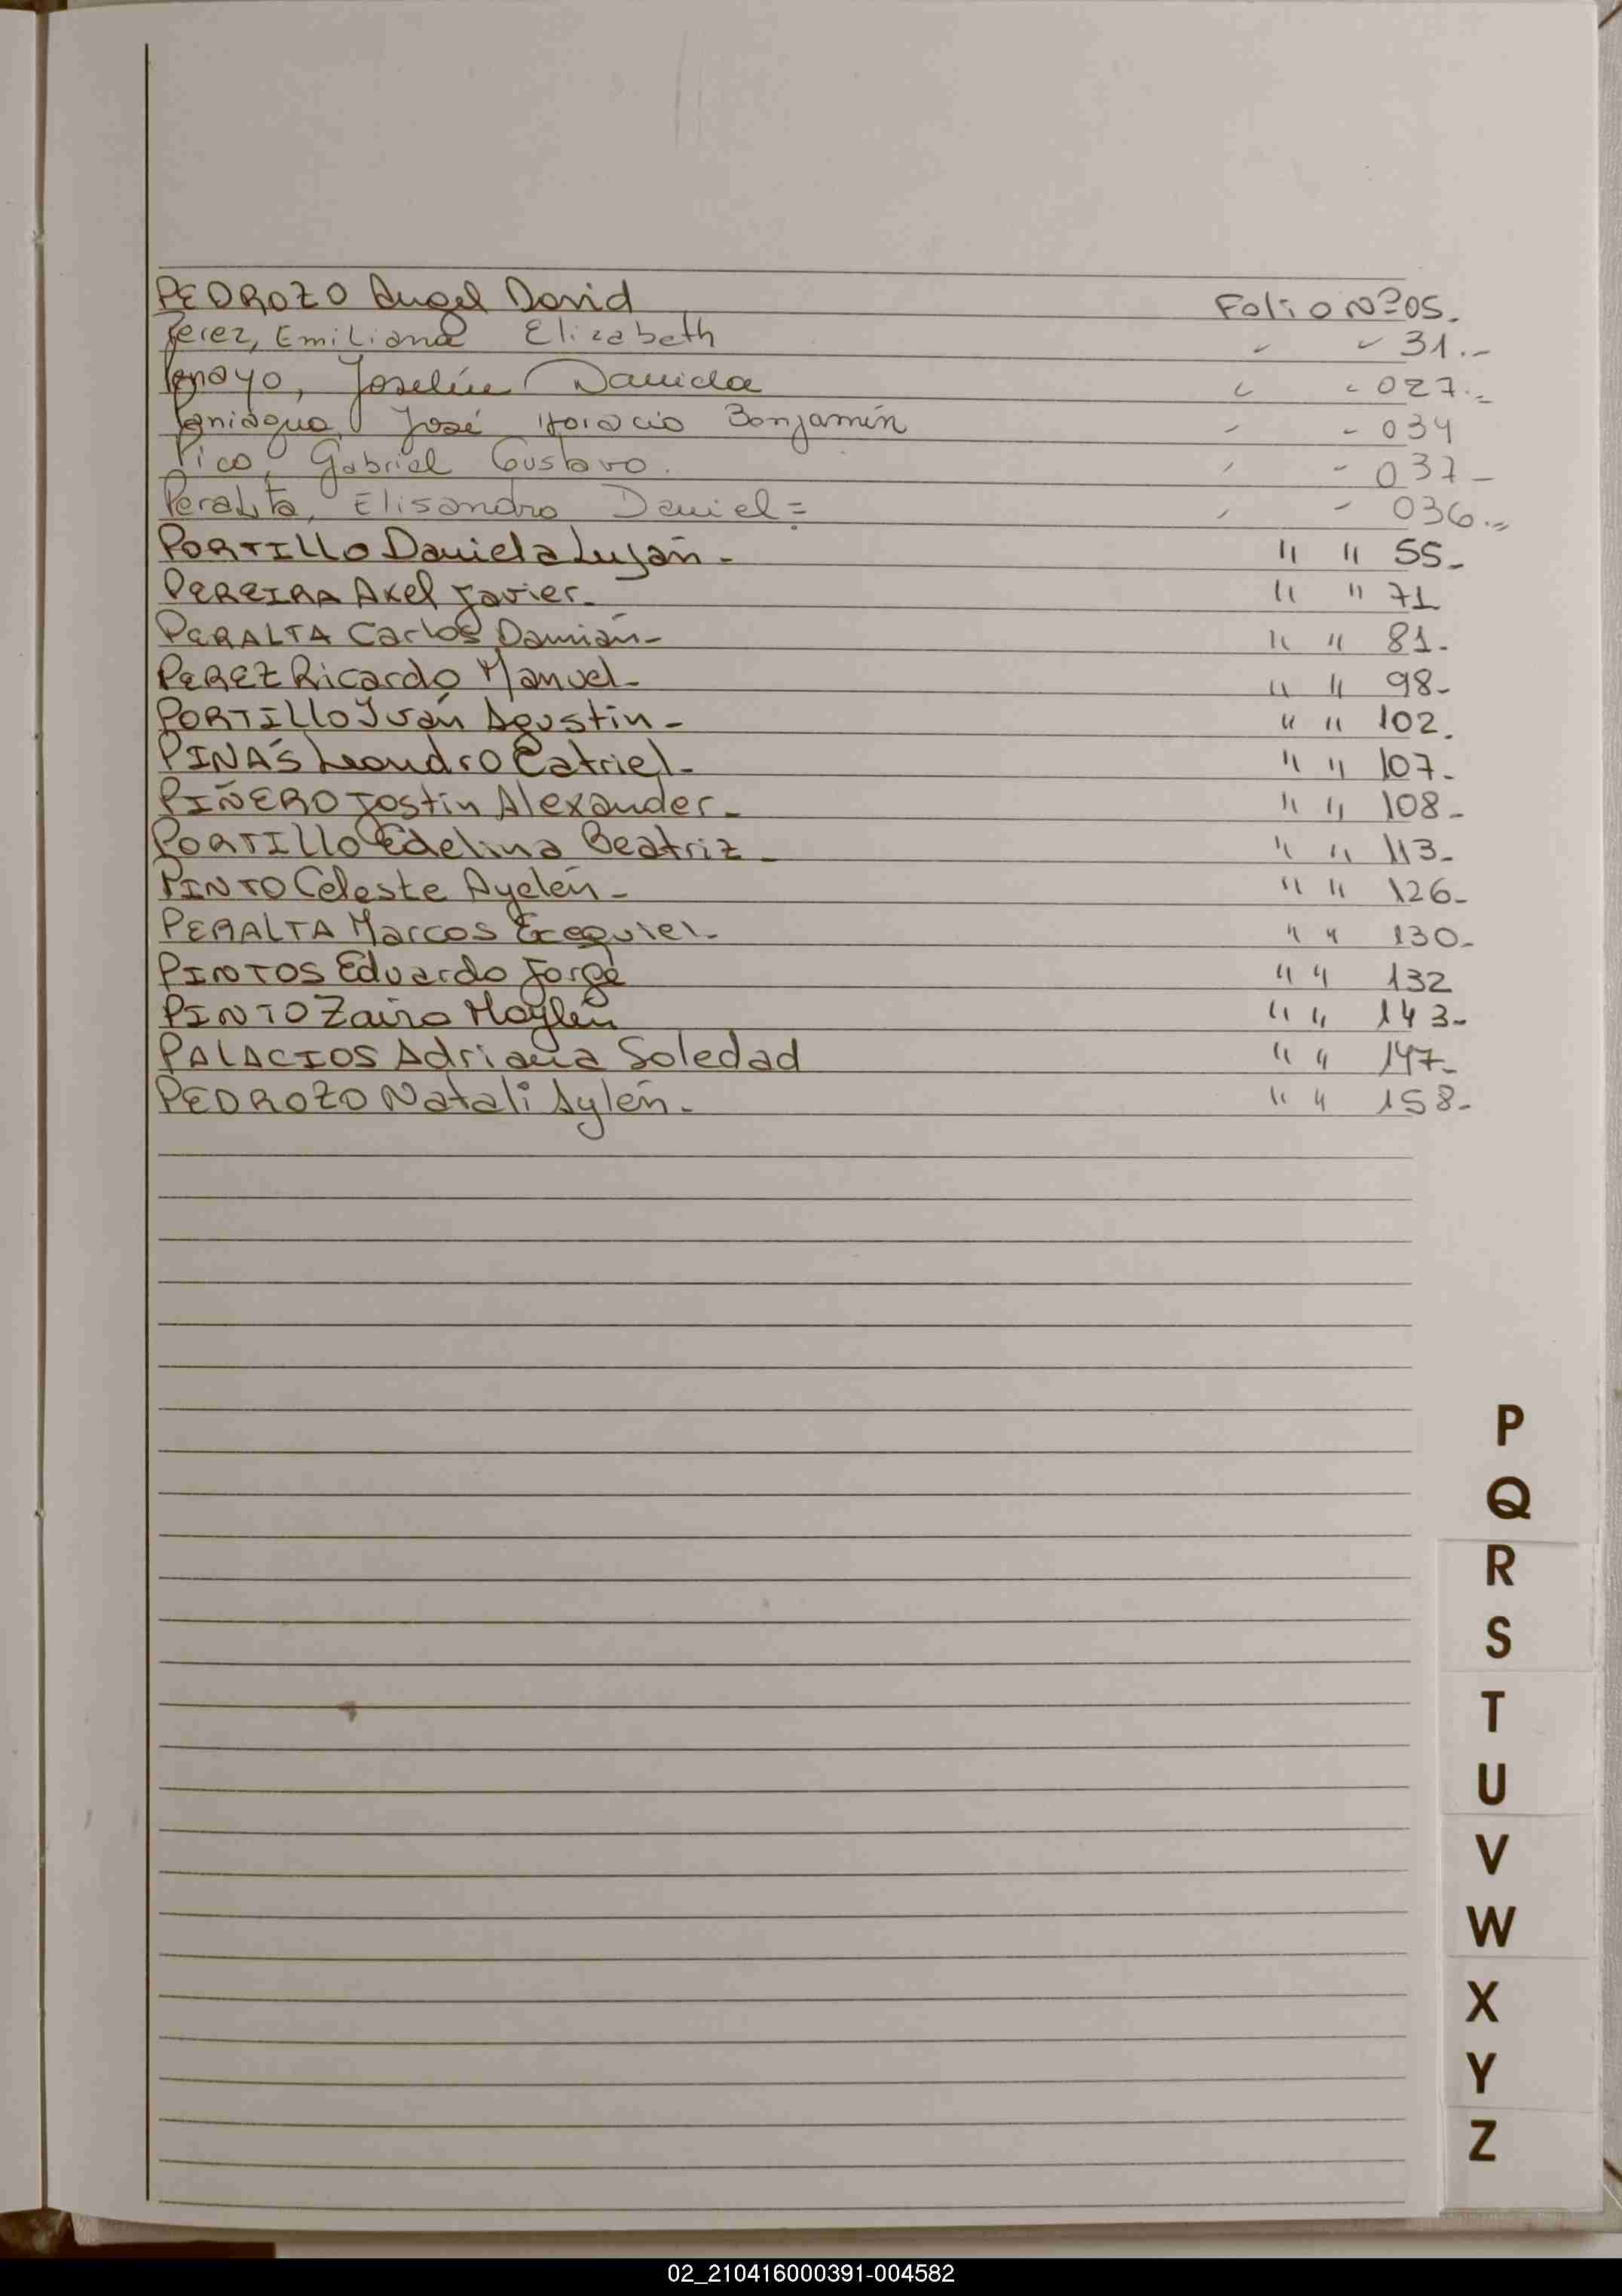 PEDROZO Angel David Folio Nº 05.
Perez, Emiliana Elizabeth " " 31.-
Penayo, Joselin Daniela " " 027.=
Paniagua, José Horacio Benjamín " " 034
Pico, Gabriel Gustavo. " " 037-
Peralta, Elisandro Daniel = " " 036.=
PORTILLO Daniela Luján- " " 55-
PEREIRA Axel Javier- " " 71
PERALTA Carlos Damián- " " 81-
PEREZ Ricardo Manuel- " " 98-
PORTILLO Iván Agustín- " " 102.
PINAS Leandro Catriel- " " 107-
PIÑERO Jostin Alexander- " " 108-
PORTILLO Edelina Beatriz- " " 113-
PINTO Celeste Ayelén- " " 126-
PERALTA Marcos Ezequiel- " " 130-
PINTOS Eduardo Jorge " " 132
PINTO Zaira Maylén " " 143-
PALACIOS Adriana Soledad " " 147-
PEDROZO Natali Aylén- " " 158-
P
Q
R
S
T
U
V
W
X
Y
Z
02_210416000391-004582